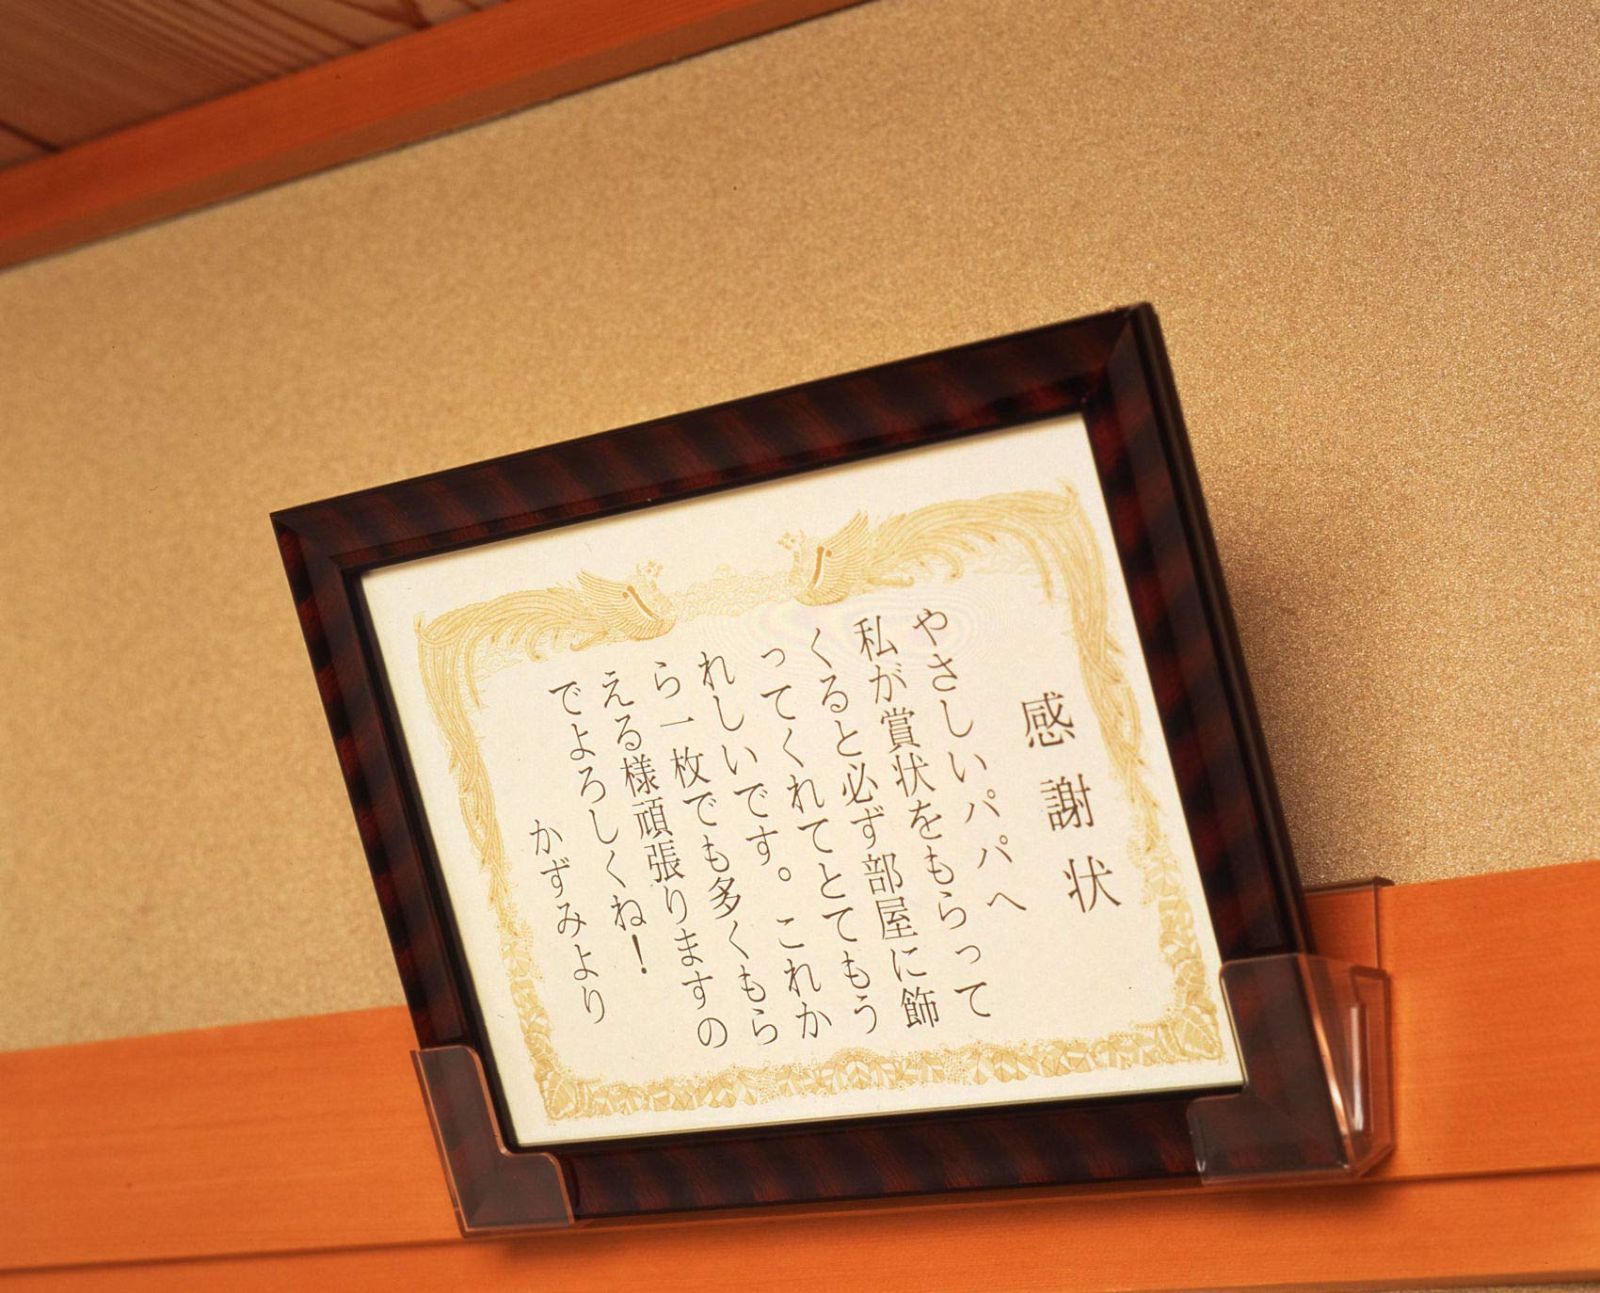 感謝状
やさしいパパへ
私が賞状をもらって
くると必ず部屋に飾
ってくれてとてもう
れしいです。これか
ら一枚でも多くもら
える様頑張りますの
でよろしくね!
かずみより